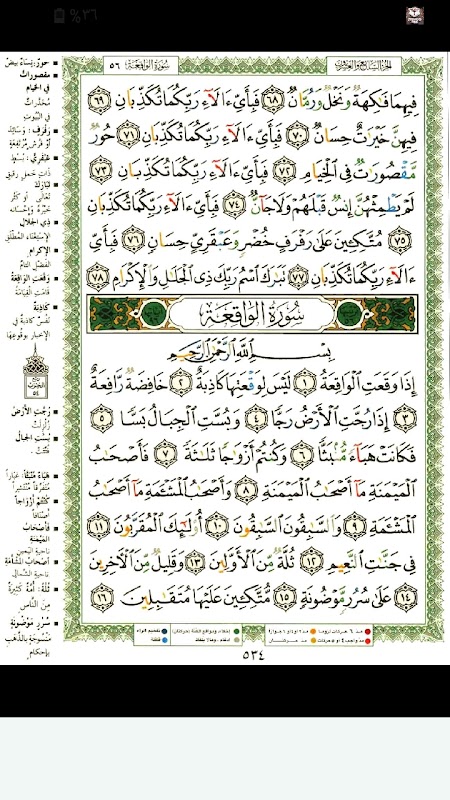 %٣٦
الجزء السابع والعشرون
سورة الواقعة ٥٦
فِيهِمَا فَٰكِهَةٌ وَنَخْلٌ وَرُمَّانٌ ٦٨ فَبِأَيِّ ءَالَآءِ رَبِّكُمَا تُكَذِّبَانِ ٦٩
فِيهِنَّ خَيْرَٰتٌ حِسَانٌ ٧٠ فَبِأَيِّ ءَالَآءِ رَبِّكُمَا تُكَذِّبَانِ ٧١ حُورٌ
مَّقْصُورَٰتٌ فِي ٱلْخِيَامِ ٧٢ فَبِأَيِّ ءَالَآءِ رَبِّكُمَا تُكَذِّبَانِ ٧٣
لَمْ يَطْمِثْهُنَّ إِنسٌ قَبْلَهُمْ وَلَا جَآنٌّ ٧٤ فَبِأَيِّ ءَالَآءِ رَبِّكُمَا تُكَذِّبَانِ
٧٥ مُتَّكِـِٔينَ عَلَىٰ رَفْرَفٍ خُضْرٍ وَعَبْقَرِيٍّ حِسَانٍ ٧٦ فَبِأَيِّ
ءَالَآءِ رَبِّكُمَا تُكَذِّبَانِ ٧٧ تَبَٰرَكَ ٱسْمُ رَبِّكَ ذِي ٱلْجَلَٰلِ وَٱلْإِكْرَامِ ٧٨
سُورَةُ الوَاقِعَةِ
بِسْمِ ٱللَّهِ ٱلرَّحْمَٰنِ ٱلرَّحِيمِ
إِذَا وَقَعَتِ ٱلْوَاقِعَةُ ١ لَيْسَ لِوَقْعَتِهَا كَاذِبَةٌ ٢ خَافِضَةٌ رَّافِعَةٌ
٣ إِذَا رُجَّتِ ٱلْأَرْضُ رَجًّا ٤ وَبُسَّتِ ٱلْجِبَالُ بَسًّا ٥
فَكَانَتْ هَبَآءً مُّنۢبَثًّا ٦ وَكُنتُمْ أَزْوَٰجًا ثَلَٰثَةً ٧ فَأَصْحَٰبُ
ٱلْمَيْمَنَةِ مَآ أَصْحَٰبُ ٱلْمَيْمَنَةِ ٨ وَأَصْحَٰبُ ٱلْمَشْـَٔمَةِ مَآ أَصْحَٰبُ
ٱلْمَشْـَٔمَةِ ٩ وَٱلسَّٰبِقُونَ ٱلسَّٰبِقُونَ ١٠ أُو۟لَٰٓئِكَ ٱلْمُقَرَّبُونَ ١١
فِي جَنَّٰتِ ٱلنَّعِيمِ ١٢ ثُلَّةٌ مِّنَ ٱلْأَوَّلِينَ ١٣ وَقَلِيلٌ مِّنَ ٱلْءَاخِرِينَ
١٤ عَلَىٰ سُرُرٍ مَّوْضُونَةٍ ١٥ مُّتَّكِـِٔينَ عَلَيْهَا مُتَقَٰبِلِينَ ١٦
حور: نساء بيض
مقصورات
في الخيام
مخدرات
في البيوت
رفرف: وسائد
أو فرش مرتفعة
عبقري: بسط
ذات خمل رقيق
تبارك
تعالى أو كثر
خيره وإحسانه
ذي الجلال
الاستغناء المطلق
الإكرام
الفضل التام
وقعت الواقعة
قامت القيامة
كاذبة
نفس كاذبة في
الإخبار بوقوعها
رجت الأرض
زلزلت
بست الجبال
فتتت
هباء منبثا: غبارا
متفرقا منتشرا
كنتم أزواجا
أصنافا
فأصحاب
الميمنة
ناحية اليمين
أصحاب المشأمة
ناحية الشمال
ثلة: أمة كثيرة
من الناس
سرر موضونة
منسوجة بالذهب
بإحكام
مد ٦ حركات لزوما
مد ٢ أو ٤ أو ٦ جوازا
إخفاء، ومواقع الغنة (حركتان)
تفخيم الراء
مد واجب ٤ أو ٥ حركات
مد حركتان
إدغام، وما لا يلفظ
قلقلة
٥٣٤